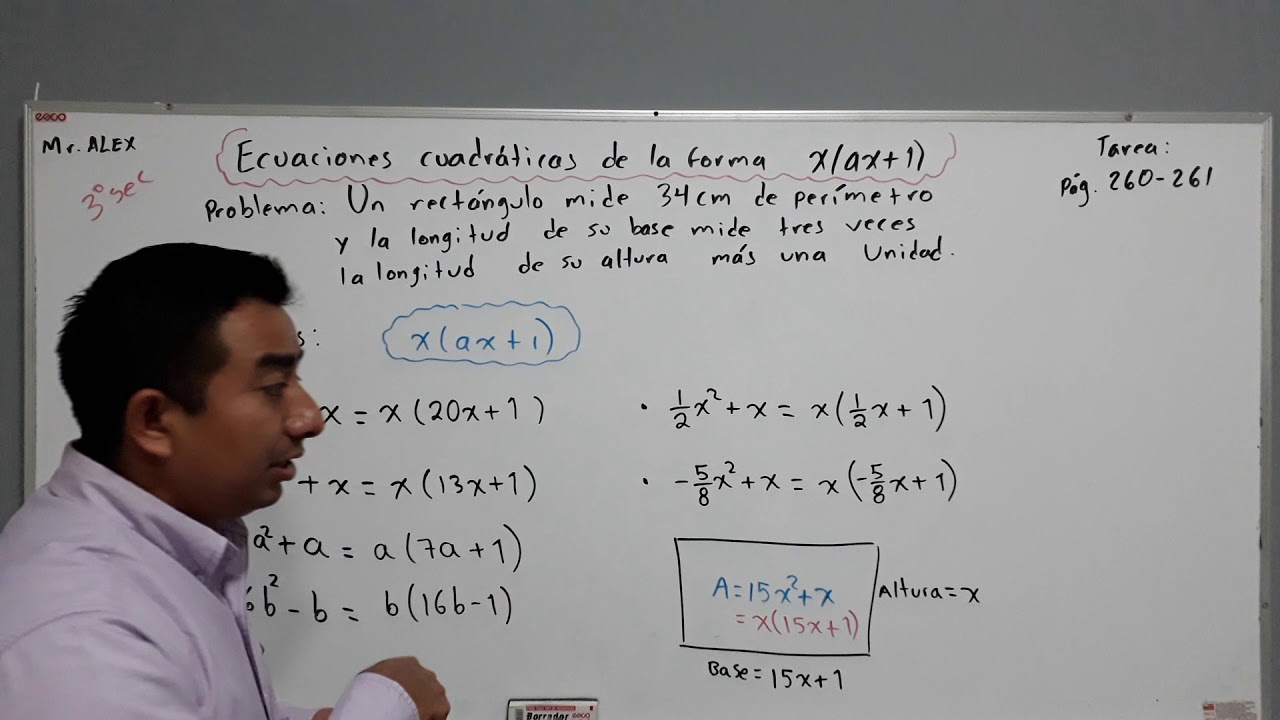 Mr. ALEX
3° sec
Ecuaciones cuadráticas de la forma x(ax+1)
Tarea:
Pág. 260-261
Problema: Un rectángulo mide 34cm de perímetro
y la longitud de su base mide tres veces
la longitud de su altura más una Unidad.
s:
x(ax+1)
x = x(20x+1)
+ x = x(13x+1)
a²+a = a(7a+1)
6b²-b = b(16b-1)
· 1/2x²+x = x(1/2x+1)
· -5/8x²+x = x(-5/8x+1)
A=15x²+x
=x(15x+1)
Altura=x
Base=15x+1
Borrador